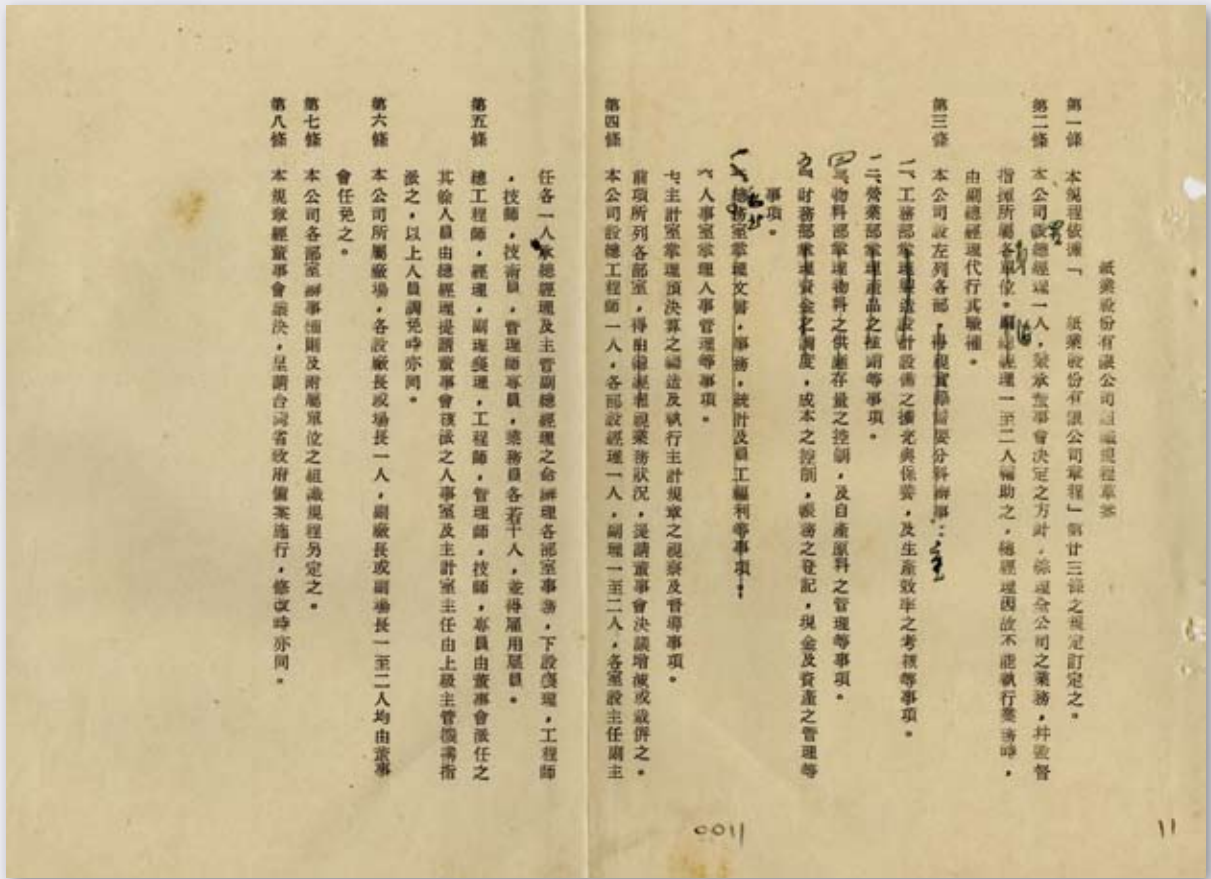 紙業股份有限公司組織規程草案
第一條 本規程依據「 紙業股份有限公司章程」第廿三條之規定訂定之。
第二條 本公司設總經理一人,秉承董事會決定之方針,綜理全公司之業務,并監督
指揮所屬各單位。副總經理一至二人輔助之,總經理因故不能執行業務時,
由副總經理代行其職權。
第三條 本公司設左列各部,得視實際需要分科辦事:
一、工務部掌理製造設計設備之擴充與保養,及生產效率之考核等事項。
二、營業部掌理產品之推銷等事項。
四、物料部掌理物料之供應存量之控制,及自產原料之管理等事項。
財務部掌理資金之調度,成本之控制,帳務之登記,現金及資產之管理等
事項。
總務室掌理文書,事務,統計及員工福利等事項。
六、人事室掌理人事管理等事項。
七、主計室掌理預決算之編造及執行主計規章之視察及督導事項。
前項所列各部室,得由總經理視業務狀況,提請董事會決議增減或裁併之。
第四條 本公司設總工程師一人,各部設經理一人,副理一至二人,各室設主任副主
任各一人承總經理及主管副總經理之命辦理各部室事務,下設襄理,工程師
,技師,技術員,管理師專員,業務員各若干人,並得雇用雇員。
第五條 總工程師,經理,副理襄理,工程師,管理師,技師,專員由董事會派任之
其餘人員由總經理提請董事會核派之人事室及主計室主任由上級主管機構指
派之,以上人員調免時亦同。
第六條 本公司所屬廠場,各設廠長或場長一人,副廠長或副場長一至二人均由董事
會任免之。
第七條 本公司各部室辦事細則及附屬單位之組織規程另定之。
第八條 本規章經董事會議決,呈請台灣省政府備案施行,修改時亦同。
0011
11